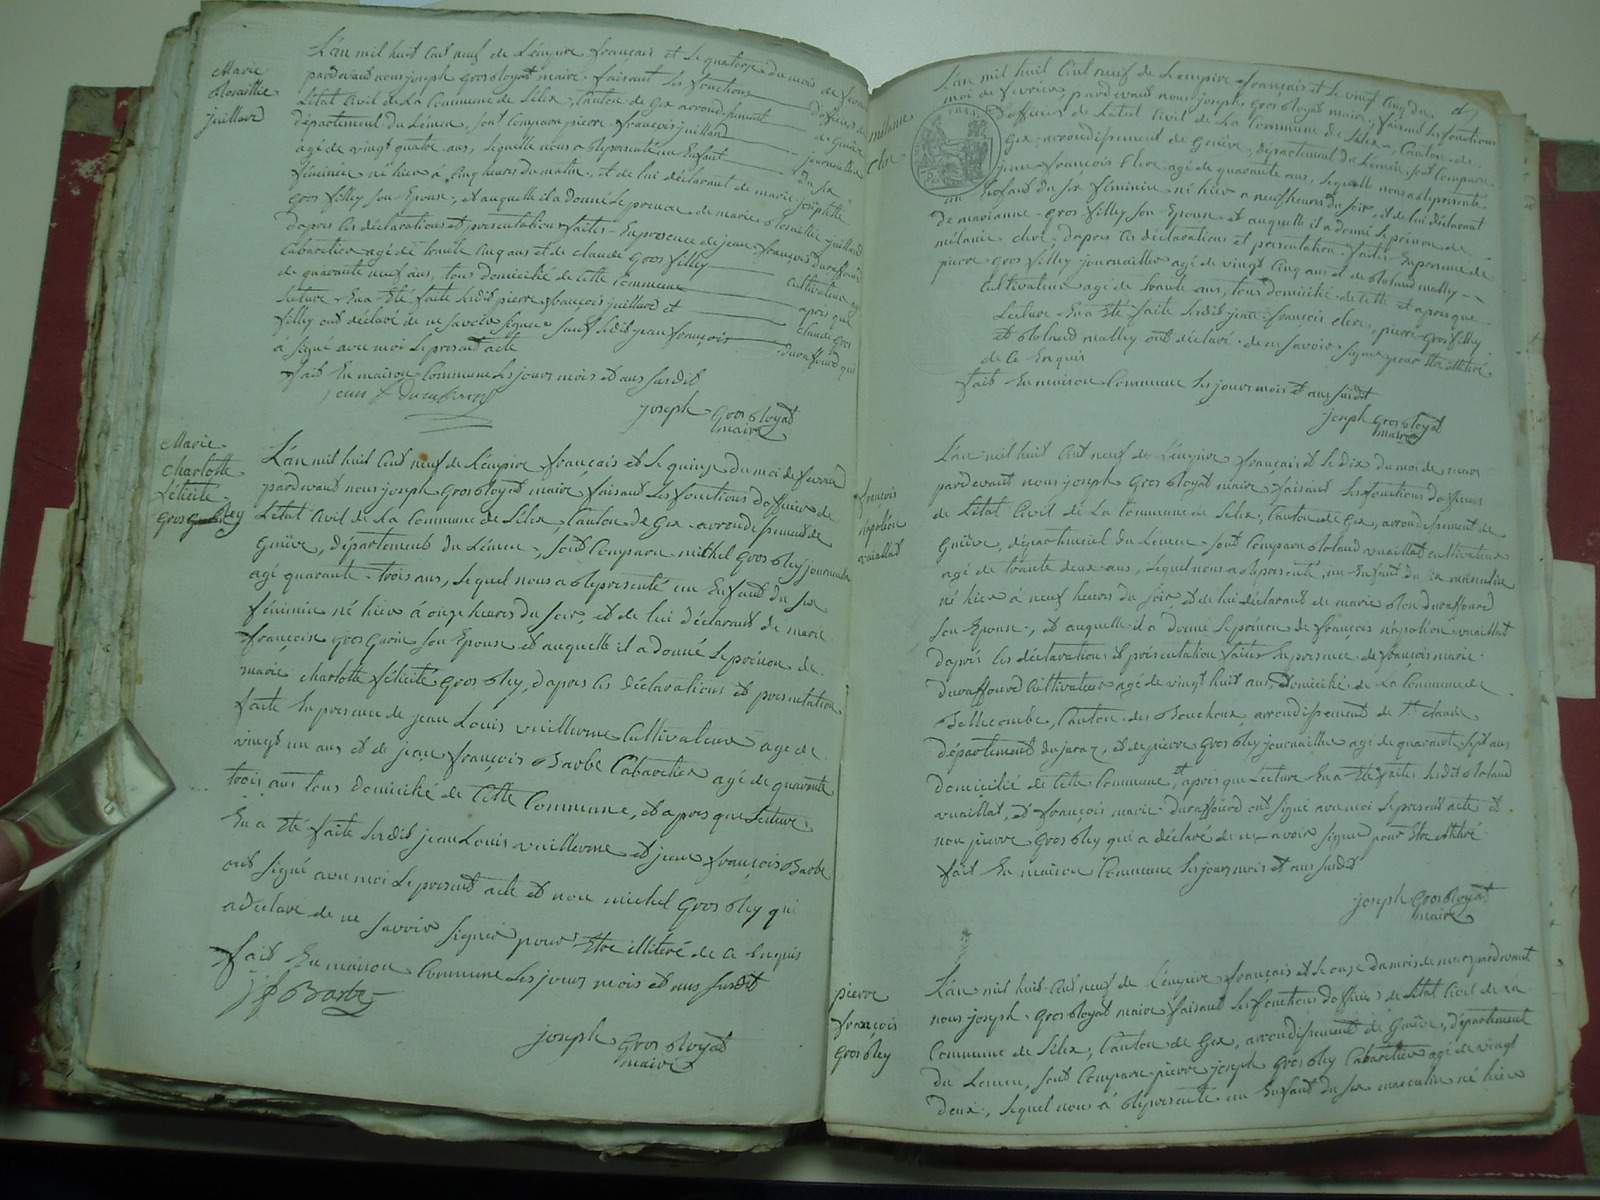 Marie
Josephte
juillard
L'an mil huit cent neuf de L'empire français et le quatorze du mois de fevrier
pardevant nous joseph grosbloyat maire faisant les fonctions d'officier de
L'etat Civil de La Commune de Lelex, Canton de Gex arrondissement de Genêve
département du Léman, sont Comparu pierre françois juillard journaillier
agé de vingt quatre ans, lequelle nous a olepresenté un Enfant du sex
féminin né hier à Cinq heurs du matin, et de lui déclarant de marie josephtte
gros filley son Epouse, et auquelle il a donné le prenon de marie juillard
dapres les déclarations et présentations faites En presence de jean françois Duraffourd
Cabaretier agé de trente Cinq ans et de claude gros filley cultivateur agé
de quarante neuf ans, tous domicilié de Cette Commune apres que
Lecture En a Eté faite lesdit pierre françois juillard et claude gros
filley ont déclaré de ne savoir signer sauf ledit jean françois Duraffourd qui
à signé avec moi le present acte
fait En maison Commune les jours mois et ans susdit
joseph grosbloyat
maire
Marie
Charlotte
félicité
Grosbley
L'an mil huit Cent neuf de L'empire français et le quinze du moi de fevrier
pardevant nous joseph grosbloyat maire faisant les fonctions d'officier de
L'etat Civil de La Commune de Lelex, Canton de Gex arrondissement de
Genêve, département du Léman, sont Comparu michel Grosbley journailier
agé quarante trois ans, lequel nous a olepresenté un Enfant du sex
féminin né hier à onze heures du soir, et de lui déclarant de marie
françoise grosgurin son Epouse et auquelle il a donné le prénon de
marie charlotte félicité Grosbley, dapres les déclarations et presentation
faite En presence de jean Louis vuillerme Cultivateur agé de
vingt un ans et de jean françois Barbe Cabaretier agé de quarante
trois ans tous domicilié de Cette Commune, et apres que Lecture
En a Eté faite lesdit jean Louis vuillerme et jean françois Barbe
ont signé avec moi le present acte et non michel Grosbley qui
a déclaré de ne savoir signer pour Etre illitéré de ce Enquis
fait En maison Commune les jours mois et ans susdit
j f Barbe
joseph grosbloyat
maire
mélanie
clerc
L'an mil huit Cent neuf de L'empire français et le vingt Cinq du
moi de fevrier, pardevant nous joseph grosbloyat maire faisant les fonctions
d'officier de L'etat Civil de La Commune de Lelex Canton de
Gex arrondissement de Genêve, département du Léman, sont Comparu
jean françois Clerc agé de quarante ans, lequelle nous a olepresenté
un Enfant du sex féminin né hier a neuf heurs du soir, et de lui déclarant
de marianne gros filley son Epouse et auquelle il a donné le prénon de
mélanie clerc, dapres les déclarations et presentation faites En presence de
pierre gros filley journailier agé de vingt Cinq ans et de Roland mathy
Cultivateur agé de trante ans, tous domicilié de Cette et apres que
Lecture En a Eté faite lesdit jean françois clerc, pierre gros filley
et Roland mathy ont déclaré de ne savoir signer pour Etre illitéré
de ce Enquis
fait En maison Commune les jours mois et ans susdit
joseph grosbloyat
maire
françois
népolion
vuaillat
L'an mil huit Cent neuf de L'empire français et le dix du moi de mars
pardevant nous joseph Grosbloyat maire faisant les fonctions d'officier
de L'etat Civil de La Commune de Lelex, Canton de Gex, arrondissement de
Genêve, département du Leman sont Comparu Roland vuaillat cultivateur
agé de trante deux ans, lequel nous a olepresenté, un Enfant du sex masculin
né hier à neuf heures du soir et de lui déclarant de marie Duraffourd
son Epouse, et auquelle il a donné le prénon de françois népolion vuaillat
dapres les déclaration et présentation faites En presence de françois marie
Duraffourd Cultivateur agé de vingt huit ans, Domicilié de La Commune de
Bellecombe, Canton des Bouchoux, arrondissement de St Claude
département du jura, et de pierre Grosbley journaillier agé de quarante sept ans
domicilié de Cette Commune, et apres que Lecture En a Eté faite lesdit Roland
vuaillat, et françois marie Duraffourd ont signé avec moi le present acte et
non pierre Grosbley qui a déclaré de ne savoir signer pour Etre illitéré
fait En maison Commune les jours mois et ans susdit
joseph Grosbloyat
maire
pierre
françois
Grosbley
L'an mil huit Cent neuf de L'empire français et le onze du mois de mars pardevant
nous joseph Grosbloyat maire faisant les fonctions d'officiers de L'etat Civil de La
Commune de Lelex, Canton de Gex, arrondissement de Genêve, département
du Leman, sont Comparu pierre joseph Grosbley Cabaretier agé de vingt
deux, lequel nous à olepresenté un Enfant du sex masculin né hier